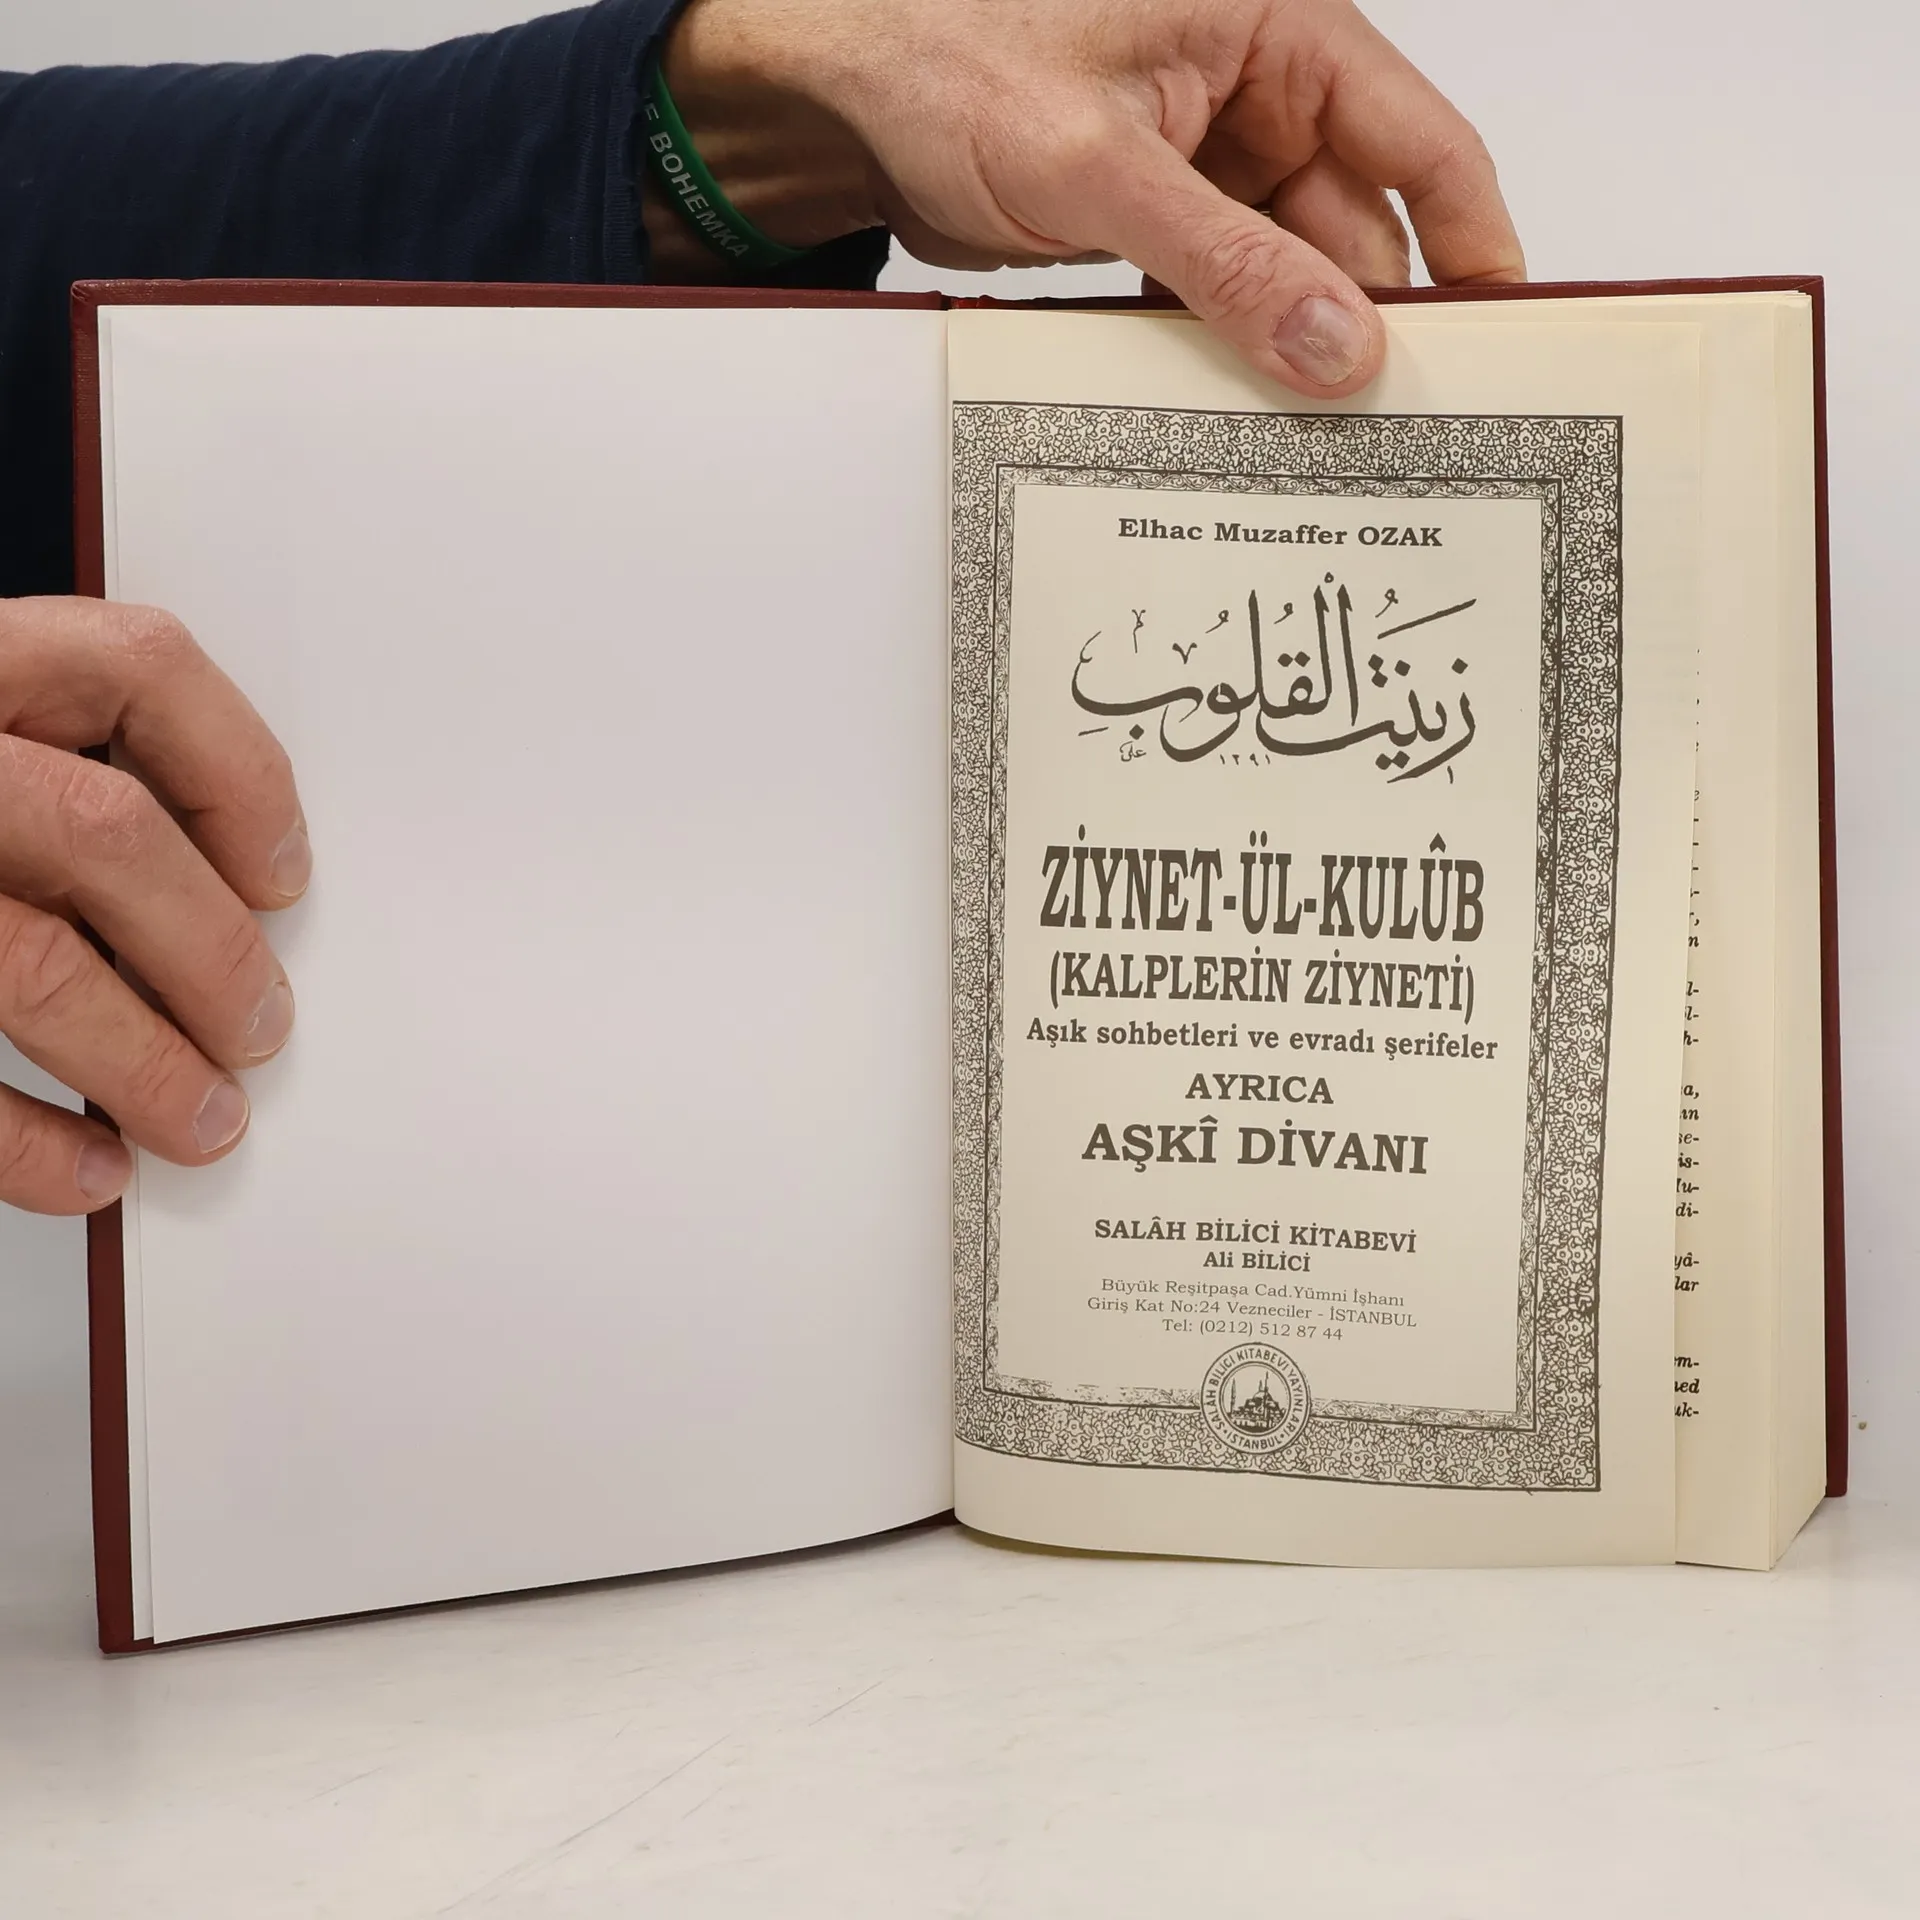 BOHEMKA
Elhac Muzaffer OZAK
زينت القلوب
ZİYNET-ÜL-KULÛB
(KALPLERİN ZİYNETİ)
Aşık sohbetleri ve evradı şerifeler
AYRICA
AŞKÎ DİVANI
SALÂH BİLİCİ KİTABEVİ
Ali BİLİCİ
Büyük Reşitpaşa Cad.Yümni İşhanı
Giriş Kat No:24 Vezneciler - İSTANBUL
Tel: (0212) 512 87 44
SALÂH BİLİCİ KİTABEVİ YAYINLARI
İSTANBUL